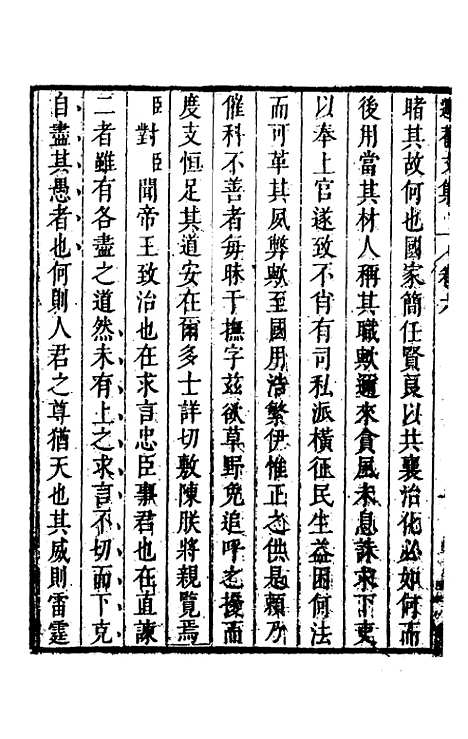 文集
卷六
睹其故何也國家簡任賢良以共襄治化必如何而
後用當其材人稱其職歟邇來貪風未息誅求下吏
以奉上官遂致不肖有司私派橫征民生益困何法
而可革其夙弊歟至國用浩繁伊惟正之供是賴乃
催科不善者每昧于撫字茲欲草野免追呼之擾而
度支恒足其道安在爾多士詳切敷陳朕將親覽焉
臣對臣聞帝王致治也在求言忠臣事君也在直諫
二者雖有各盡之道然未有上之求言不切而下克
自盡其愚者也何則人君之尊猶天也其威則雷霆